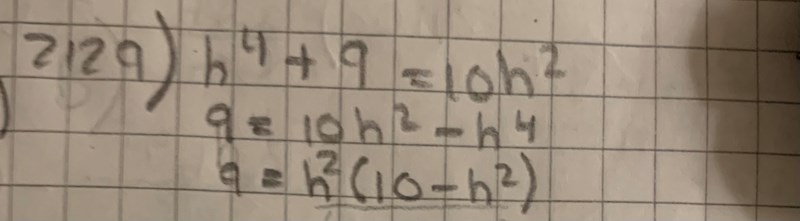 2129) h⁴ + 9 = 10h²
9 = 10h² - h⁴
9 = h²(10 - h²)